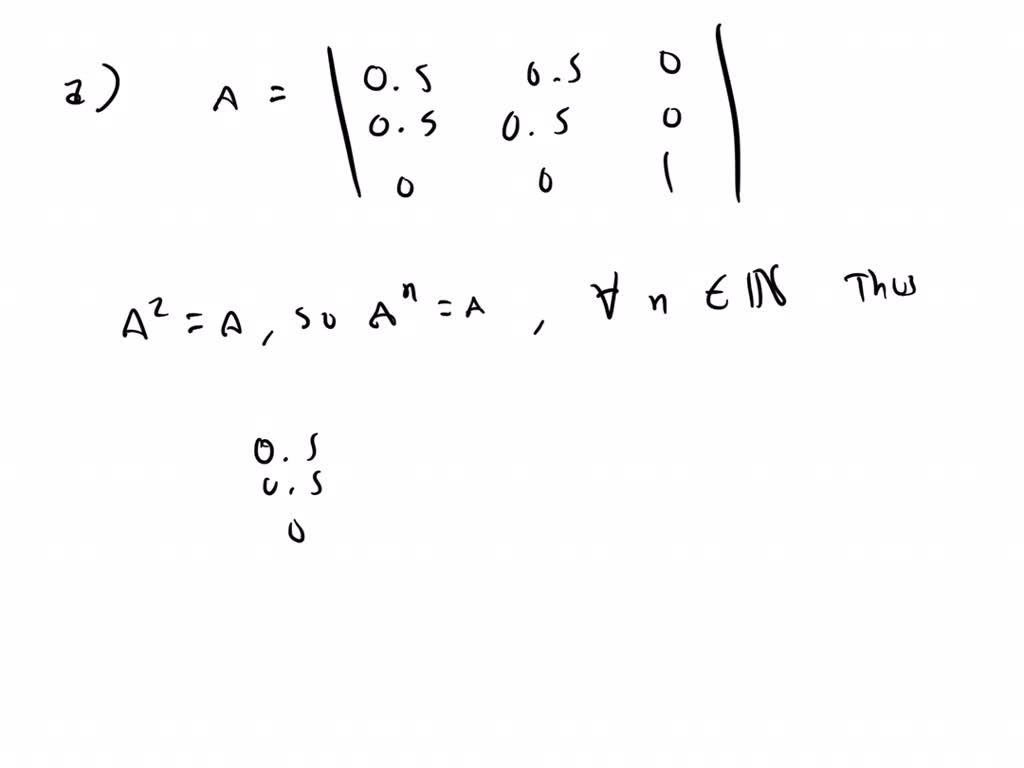 a) A = | 0.5 0.5 0 |
0.5 0.5 0
0 0 1
A² = A, so Aⁿ = A, ∀ n ∈ ℕ Thus
0.5
0.5
0